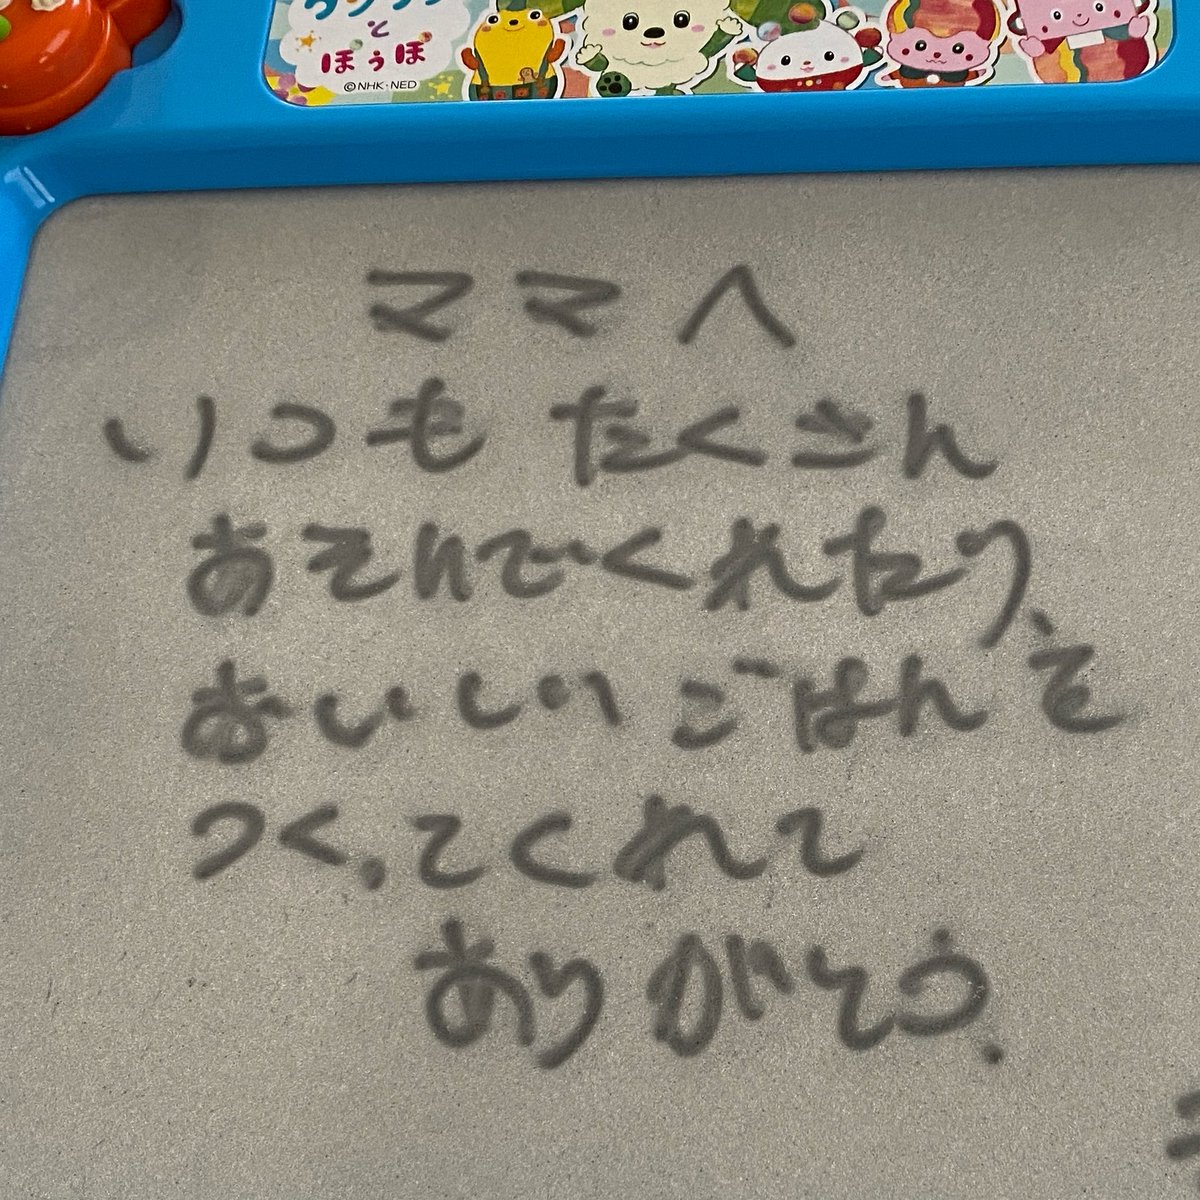 と
ぽぅぽ
©NHK・NED
ママへ
いつも たくさん
あそんでくれたり、
おいしい ごはんを
つくってくれて
ありがとう.